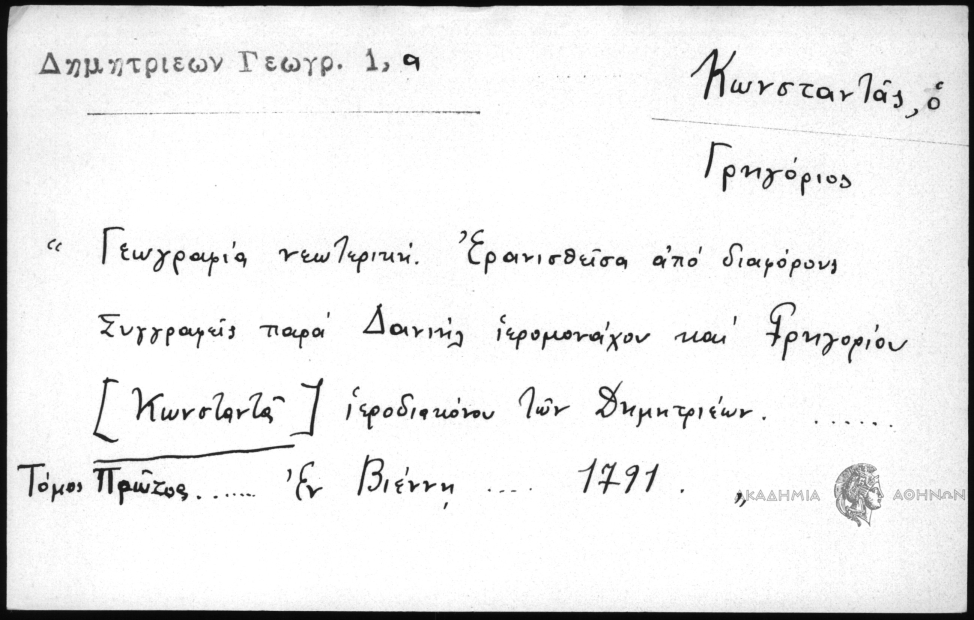 Δημητριεων Γεωγρ. 1, α
Κωνσταντᾶς, ὁ
Γρηγόριος
“ Γεωγραφία νεωτερική. Ἐρανισθεῖσα ἀπό διαφόρους
Συγγραφεῖς παρά Δανιήλ ἱερομονάχου καί Γρηγορίου
[Κωνσταντᾶ] ἱεροδιακόνου τῶν Δημητριέων. ......
Τόμος Πρῶτος....... Ἐν Βιέννῃ .... 1791. „
ΑΚΑΔΗΜΙΑ ΑΘΗΝΩΝ